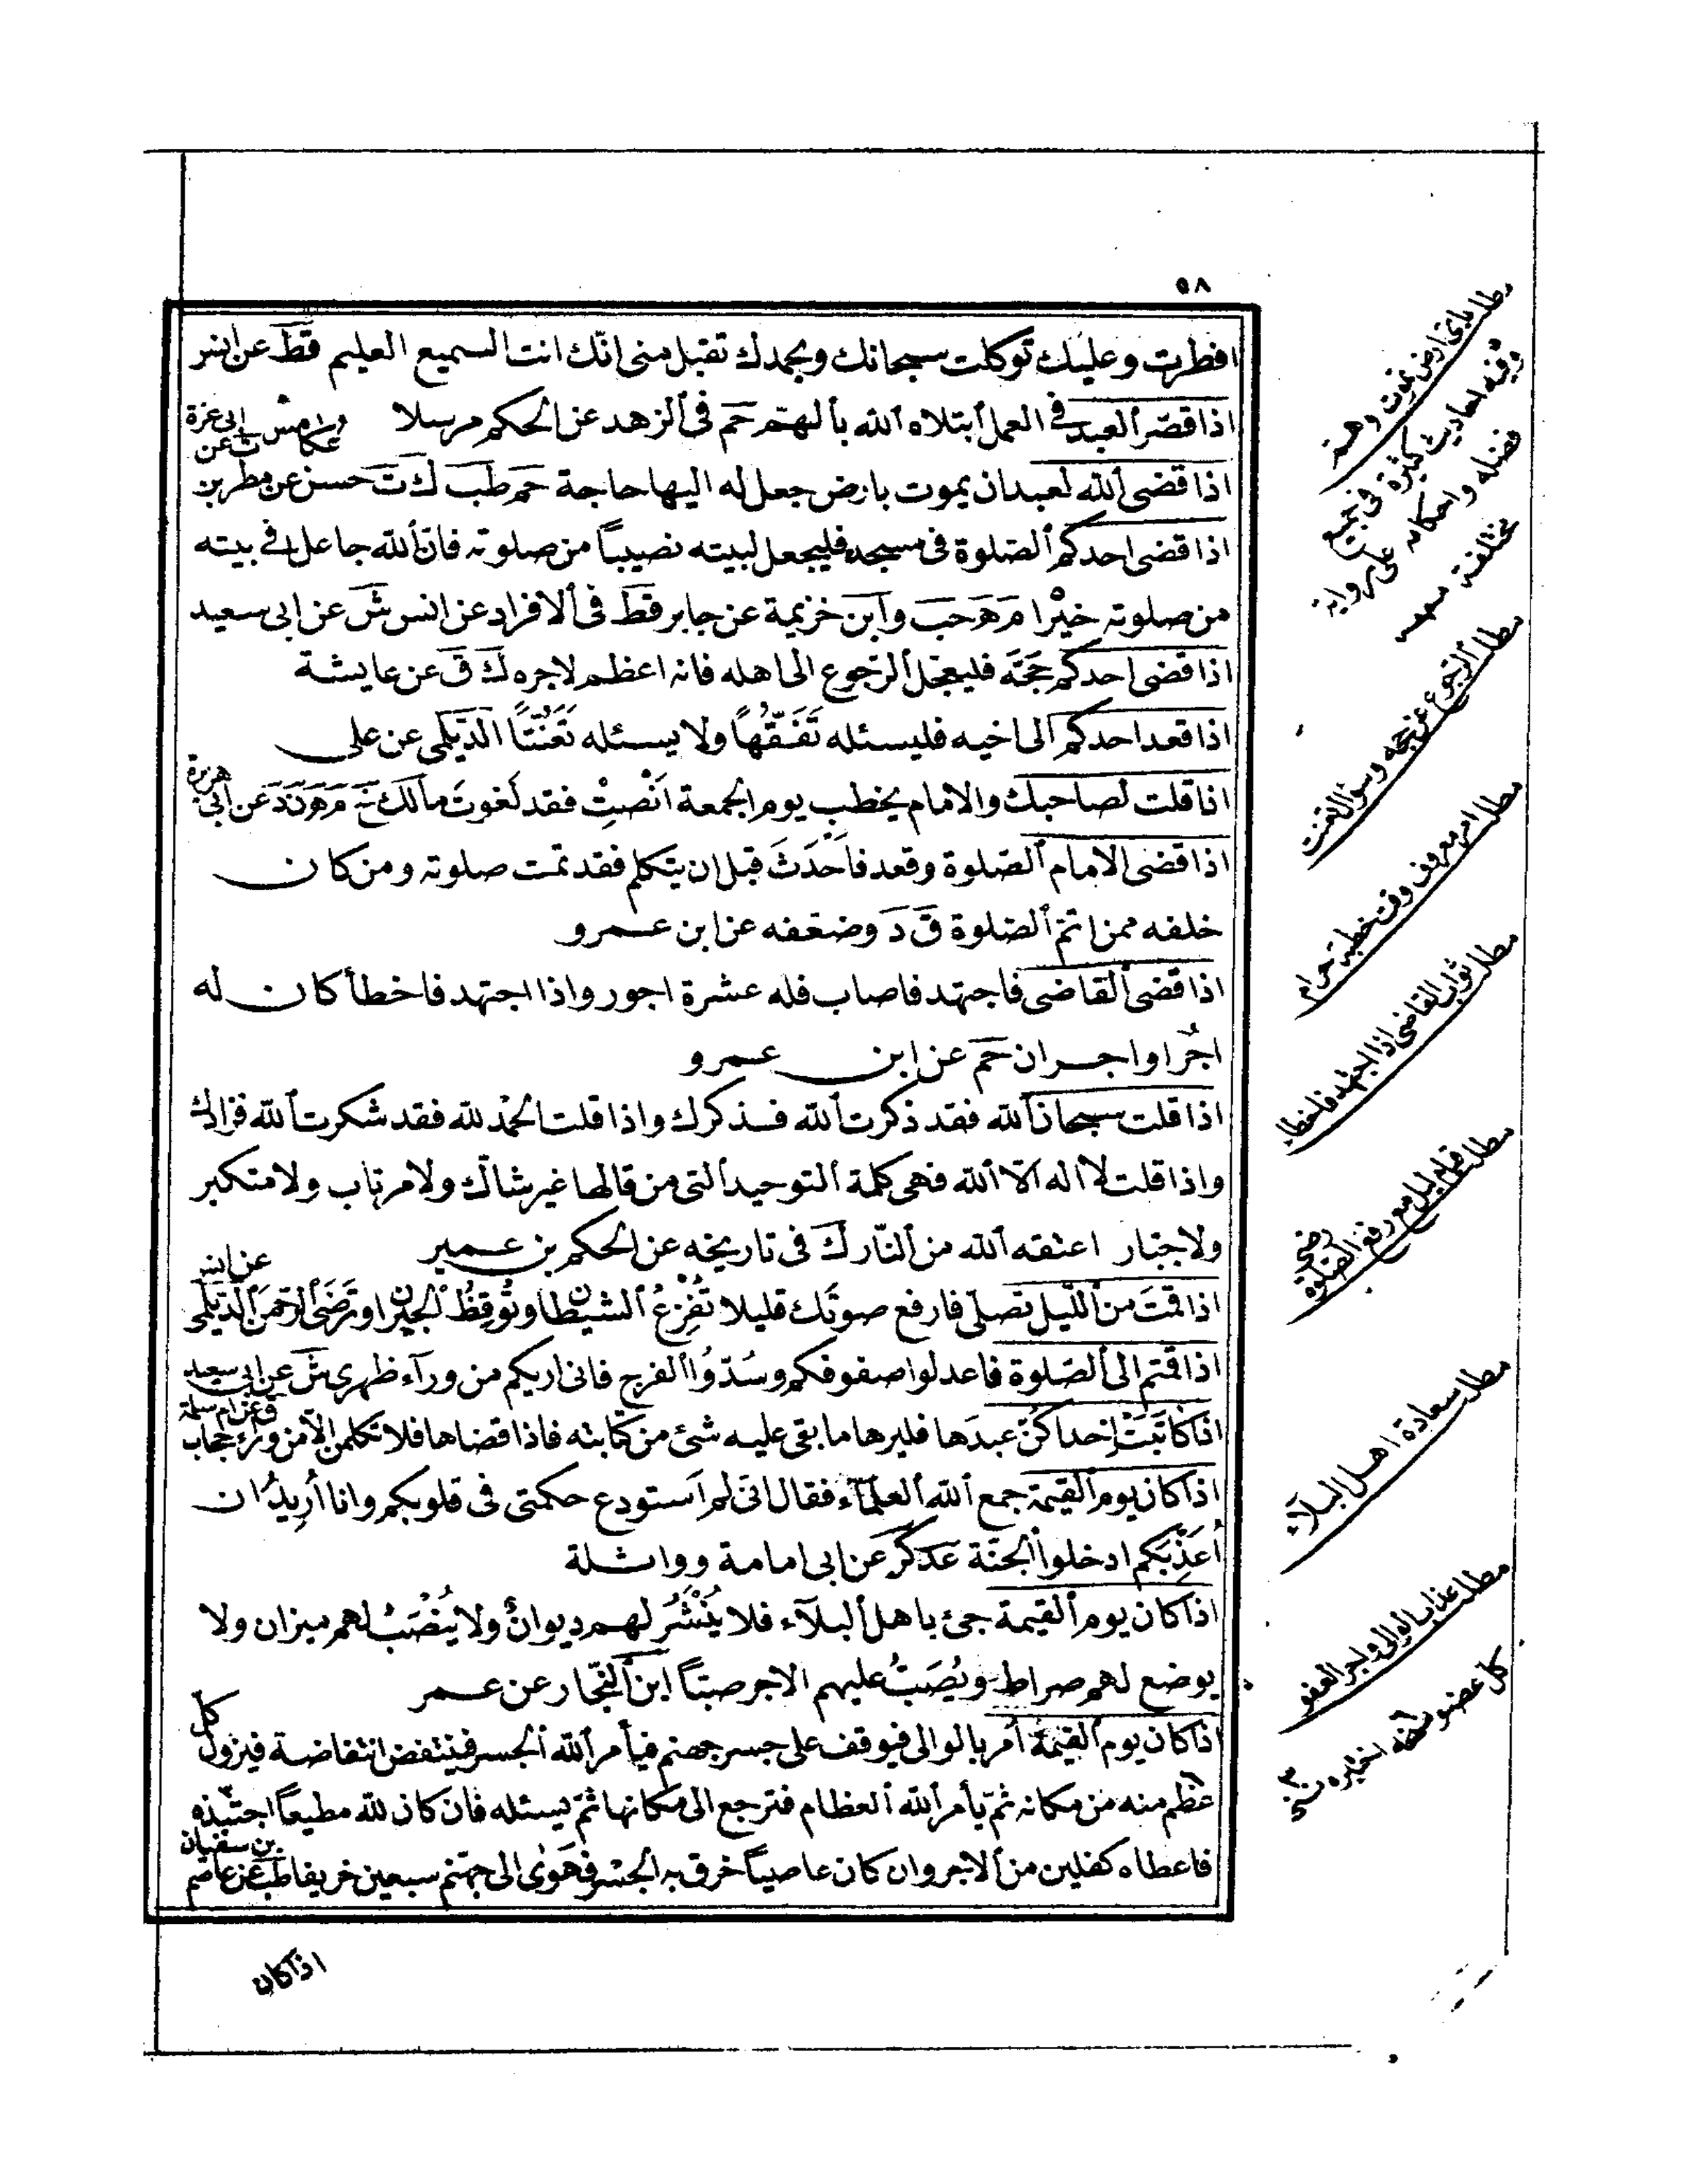 ٥٨
افطرت وعليك توكلت سبحانك وبحمدك تقبل منى انّك انت السميع العليم قط عن انس
اذا قصّر العبد فى العمل ابتلاه الله بالهمّ حم فى الزهد عن الحكم مرسلا
اذا قضى الله لعبد ان يموت بارض جعل له اليها حاجة حم طب ك ت حسن عن مطر بن
عكامس ت عن ابى عزة
اذا قضى احدكم الصّلوة فى مسجد فليجعل لبيته نصيباً من صلوته فانّ الله جاعل فى بيته
من صلوته خيْرا م ه حب وابن خزيمة عن جابر قط فى الافراد عن انس ش عن ابى سعيد
اذا قضى احدكم حجّه فليعجّل الرّجوع الى اهله فانه اعظم لاجره ك ق عن عايشة
اذا قعد احدكم الى اخيه فليسئله تَفَقّهًا ولا يسئله تَعَنّتًا الدّيلمى عن على
اذا قلت لصاحبك والامام يخطب يوم الجمعة اَنْصِتْ فقد لغوتَ مالك خ م ه ن د عن ابى هريرة
اذا قضى الامام الصّلوة وقعد فاَحْدَثَ قبل ان يتكلم فقد تمت صلوته ومن كان
خلفه ممن اتمّ الصّلوة ق د وضعّفه عن ابن عمرو
اذا قضى القاضى فاجتهد فاصاب فله عشرة اجور واذا اجتهد فاخطأ كان له
اجْرا واجران حم عن ابن عمرو
اذا قلت سبحان الله فقد ذكرت الله فذكرك واذا قلت الحمْد لله فقد شكرت الله فزادك
واذا قلت لا اله الّا الله فهى كلمة التوحيد التى من قالها غير شاكّ ولا مرتاب ولا متكبر
ولا جبّار اعتقه الله من النّار ك فى تاريخه عن الحكم بن عمير
اذا قمتَ من اللّيل تصلّى فارفع صوتك قليلا تُفْزِعُ الشيطان وتُوقِظُ الجيران وتُرضى الرّحمن الدّيلمى عن انس
اذا قمتم الى الصّلوة فاعدلوا صفوفكم وسُدّوُا الفرج فانى اريكم من ورآء ظهرى ش عن ابى سعيد
اذا كاتَبَتْ اِحداكنّ عبدَها فليرها ما بقى عليه شئ من كتابته فاذا قضاها فلا تكلمن الّا من وراء حجاب ق عن ام سلمة
اذا كان يوم القيمة جمع الله العلمآء فقال انّى لم استودع حكمتى فى قلوبكم وانا اُرِيدُ ان
اُعَذّبكم ادخلوا الجنّة عد كر عن ابى امامة وواثلة
اذا كان يوم القيمة جئ باهل البلآء فلا يُنْشَرُ لهم ديوانٌ ولا يُنْصَبُ لهم ميزان ولا
يوضع لهم صراط ويُصَبّ عليهم الاجر صبّاً ابن النجّار عن عمر
اذا كان يوم القيمة اُمر بالوالى فيوقف على جسر جهنم فيأمر الله الجسر فينتفض انتفاضة فيزول كل
عظم منه من مكانه ثمّ يأمر الله العظام فترجع الى مكانها ثمّ يسئله فان كان لله مطيعاً اجتبذه
فاعطاه كفلين من الاجر وان كان عاصياً خرق به الجسْر فهَوٰى الى جهنّم سبعين خريفا طب عن عاصم بن سفيان
اذا كان
مطلب باى ارض يموت
وفيه احاديث كثيرة فى جميع
فضله واحكامه على رواية
مختلفة
مطلب الرّجوع عن حجه وسؤال تعنت
مطلب امر معروف وقت خطبة حرام
مطلب ثواب القاضى اذا اجتهد فاخطاء
مطلب قيام ليل مع رفع الصّلوة
مطلب سعادة اهل البلآء
مطلب عذاب الوالى واجر العفو
كل عضو نسخه